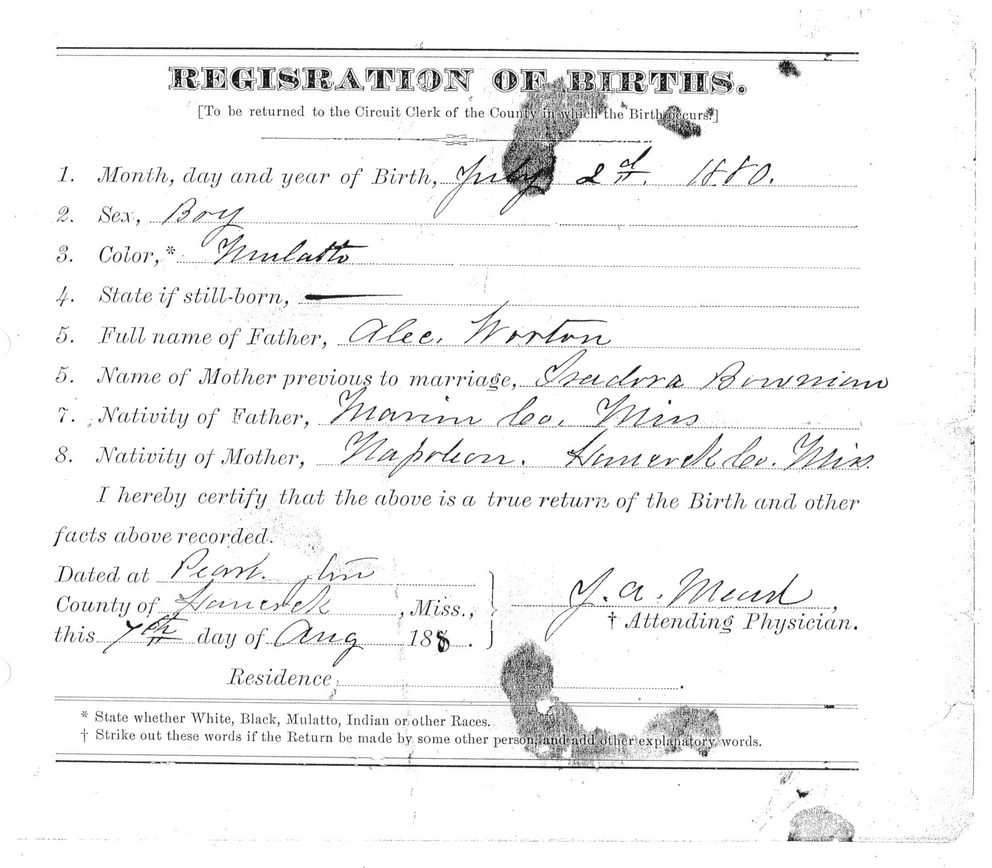 REGISRATION OF BIRTHS.
[To be returned to the Circuit Clerk of the County in which the Birth occurs.]
1. Month, day and year of Birth, July 2d. 1880.
2. Sex, Boy
3. Color,* Mulatto
4. State if still-born,
5. Full name of Father, Alec. Worton
5. Name of Mother previous to marriage, Isadora Bowman
7. Nativity of Father, Marion Co. Miss
8. Nativity of Mother, Napoleon. Hancock Co. Miss.
I hereby certify that the above is a true return of the Birth and other
facts above recorded.
Dated at Pearl.
County of Hancock, Miss.,
this 7th day of Aug 188 .
J. A. Mead,
† Attending Physician.
Residence, .
* State whether White, Black, Mulatto, Indian or other Races.
† Strike out these words if the Return be made by some other person, and add other explanatory words.